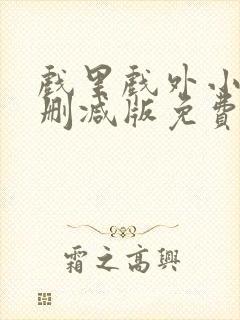 戲里戲外小
刪減版免費
霜之高興